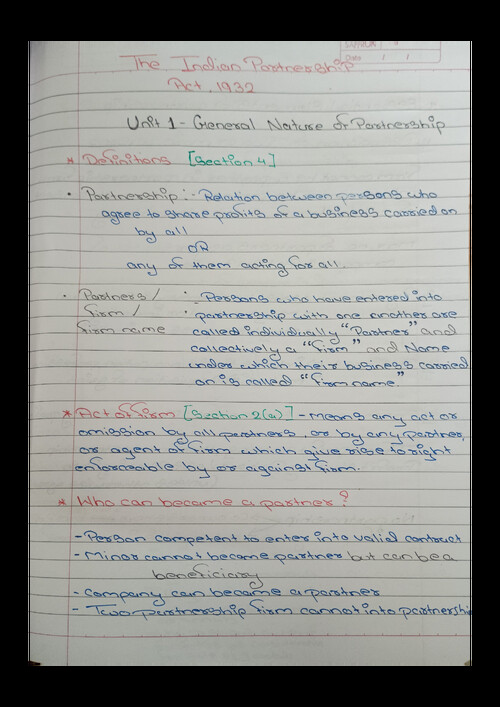 Date / /
The Indian Partnership
Act, 1932
Unit 1 - General Nature of Partnership
* Definitions [Section 4]
• Partnership :- Relation between persons who
agree to share profits of a business carried on
by all
OR
any of them acting for all.
• Partners / :- Persons who have entered into
firm / : partnership with one another are
firm name called individually "Partner" and
collectively a "firm" and Name
under which their business carried
on is called "firm name"
* Act of firm [Section 2(a)] - Means any act or
omission by all partners, or by any partner,
or agent of firm which give rise to right
enforceable by or against firm.
* Who can became a partner?
- Person competent to enter into valid contract
- Minor cannot become partner but can be a
beneficiary
- Company can became a partner
- Two partnership firm cannot into partnership